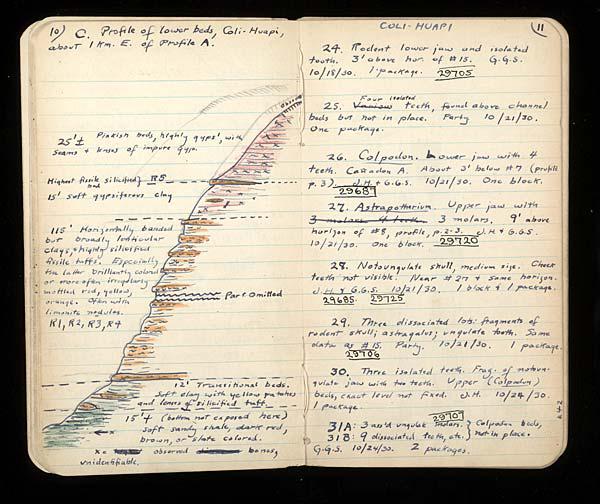 10) C. Profile of lower beds, Coli-Huapi,
about 1 km. E. of Profile A.
25'± Pinkish beds, highly gyps', with
seams & lenses of impure gyp.
Highest fissile silicified bed R5
15' soft gypsiferous clay
115' Horizontally banded
but broadly lenticular
clays, & highly silicified
fissile tuffs. Especially
the latter brilliantly colored
or more often irregularly
mottled red, yellow,
orange. Often with
limonite nodules.
R1, R2, R3, R4
Part Omitted
12' Transitional beds.
Soft clay with yellow patches
and lenses of silicified tuff.
15'+ (bottom not exposed here)
soft sandy shale, dark red,
brown, or slate colored.
x = observed bones,
unidentifiable.
COLI-HUAPI 11
24. Rodent lower jaw and isolated
tooth. 3' above hor. of #15. G.G.S.
10/18/30. 1 package. 29705
25. Four isolated Various teeth, found above channel
beds but not in place. Party 10/21/30.
One package.
26. Colpodon. Lower jaw with 4
teeth. Cañadon A. About 2' below #7 (profile
p. 3). J.H. & G.G.S. 10/21/30. One block.
29687
27. Astrapotherium. Upper jaw with
3 molars, 4 teeth. 3 molars. 9' above
horizon of #8, profile, p. 2-3. J.H & G.G.S.
10/21/30. One block. 29720
28. Notoungulate skull, medium size. Cheek
teeth not visible. Near #27 & same horizon.
J.H. & G.G.S. 10/21/30. 1 block & 1 package.
29685. 29725
29. Three dissociated lots: fragments of
rodent skull; astragalus; ungulate tooth. Same
data as #15. Party. 10/21/30. 1 package.
29706
30. Three isolated teeth. Frag. of notoun-
gulate jaw with two teeth. Upper (Colpodon)
beds, exact level not fixed. J.H. 10/24/30.
1 package.
29707
31A: 3 ass'd ungulate molars. } Colpodon beds,
31B: 9 dissociated teeth, etc. } not in place.
G.G.S. 10/24/30. 2 packages.